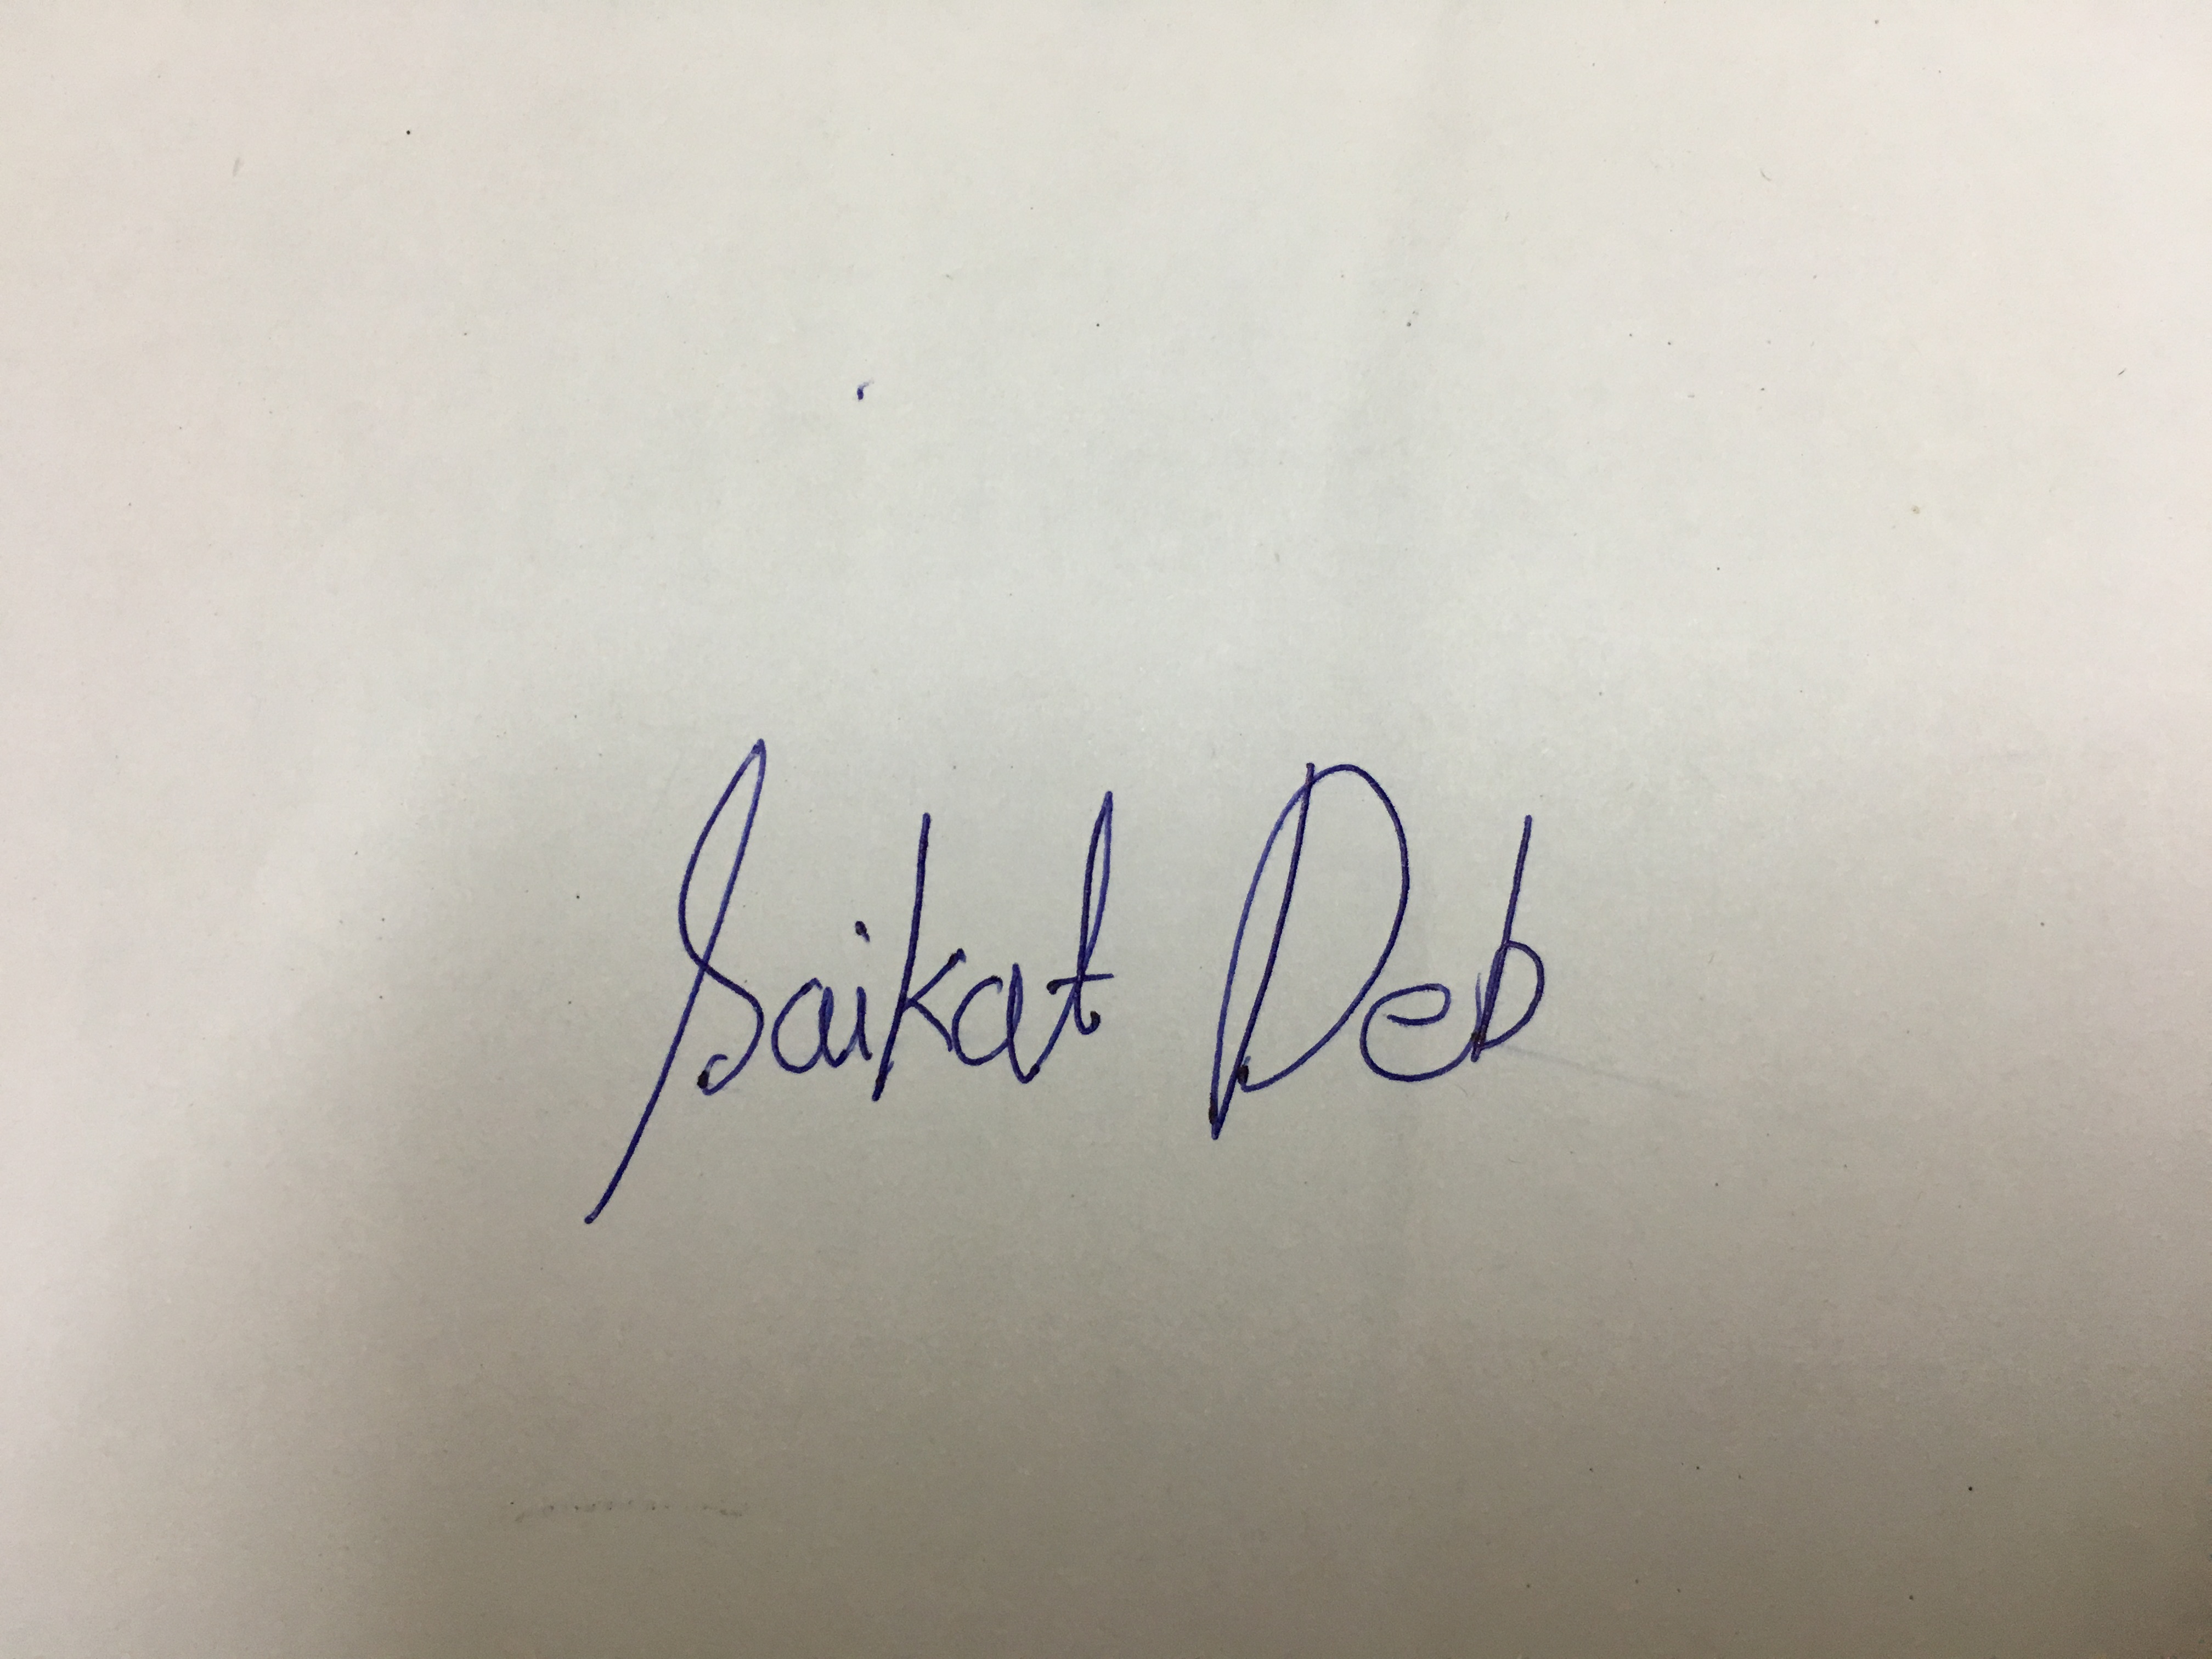 Saikat Deb